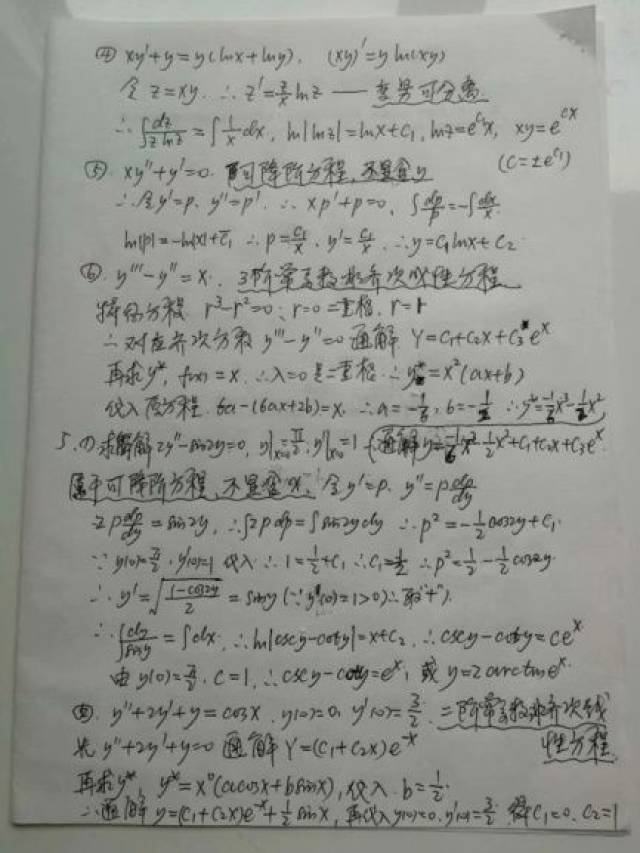 ④ xy'+y=y(lnx+lny), (xy)'=yln(xy)
令 z=xy. ∴ z'=z/x lnz —— 变量可分离
∴ ∫dz/(z lnz) = ∫1/x dx, ln|lnz|=lnx+C₁, lnz=e^{C₁}x, xy=e^{cx}
(C=±e^{C₁})
⑤. xy''+y'=0. 可降阶方程, 不显含y
∴ 令y'=p, y''=p' ∴ xp'+p=0, ∫dp/p=-∫dx/x
ln|p|=-ln|x|+C₁ ∴ p=C₁/x, y'=C₁/x, ∴ y=C₁lnx+C₂
⑥ y'''-y''=x. 3阶常系数非齐次线性方程
特征方程 r³-r²=0, r=0二重根, r=1
∴ 对应齐次方程 y'''-y''=0 通解 Y=C₁+C₂x+C₃e^x
再求y*, f(x)=x ∴ λ=0是二重根 ∴ y*=x²(ax+b)
代入原方程. 6a-(6ax+2b)=x, ∴ a=-1/6, b=-1/2 ∴ y*=-1/6x³-1/2x²
5. (1) 求解 2y''-sin2y=0, y|x=0=π/2, y'|x=0=1 通解y=-1/6x³-1/2x²+C₁+C₂x+C₃e^x
属于可降阶方程, 不显含x, 令y'=p. y''=p dp/dy
2p dp/dy=sin2y, ∴ ∫2pdp=∫sin2ydy ∴ p²=-1/2cos2y+C₁
∵ y(0)=π/2, y'(0)=1 代入 ∴ 1=1/2+C₁ ∴ C₁=1/2 ∴ p²=1/2-1/2cos2y
∴ y'=√((1-cos2y)/2)=siny (∵ y'(0)=1>0 ∴ 取"+")
∴ ∫dy/siny=∫dx, ∴ ln|cscy-coty|=x+C₂, ∴ cscy-coty=ce^x
由 y(0)=π/2. C=1, ∴ cscy-coty=e^x, 或 y=2arctane^x
y''+2y'+y=cosx, y(0)=0, y'(0)=3/2. 二阶常系数非齐次线
性方程
先 y''+2y'+y=0 通解 Y=(C₁+C₂x)e^{-x}
再求y*, y*=x⁰(acosx+bsinx), 代入. b=1/2
∴ 通解 y=(C₁+C₂x)e^{-x}+1/2sinx, 再代入y(0)=0, y'(0)=3/2 得C₁=0. C₂=1